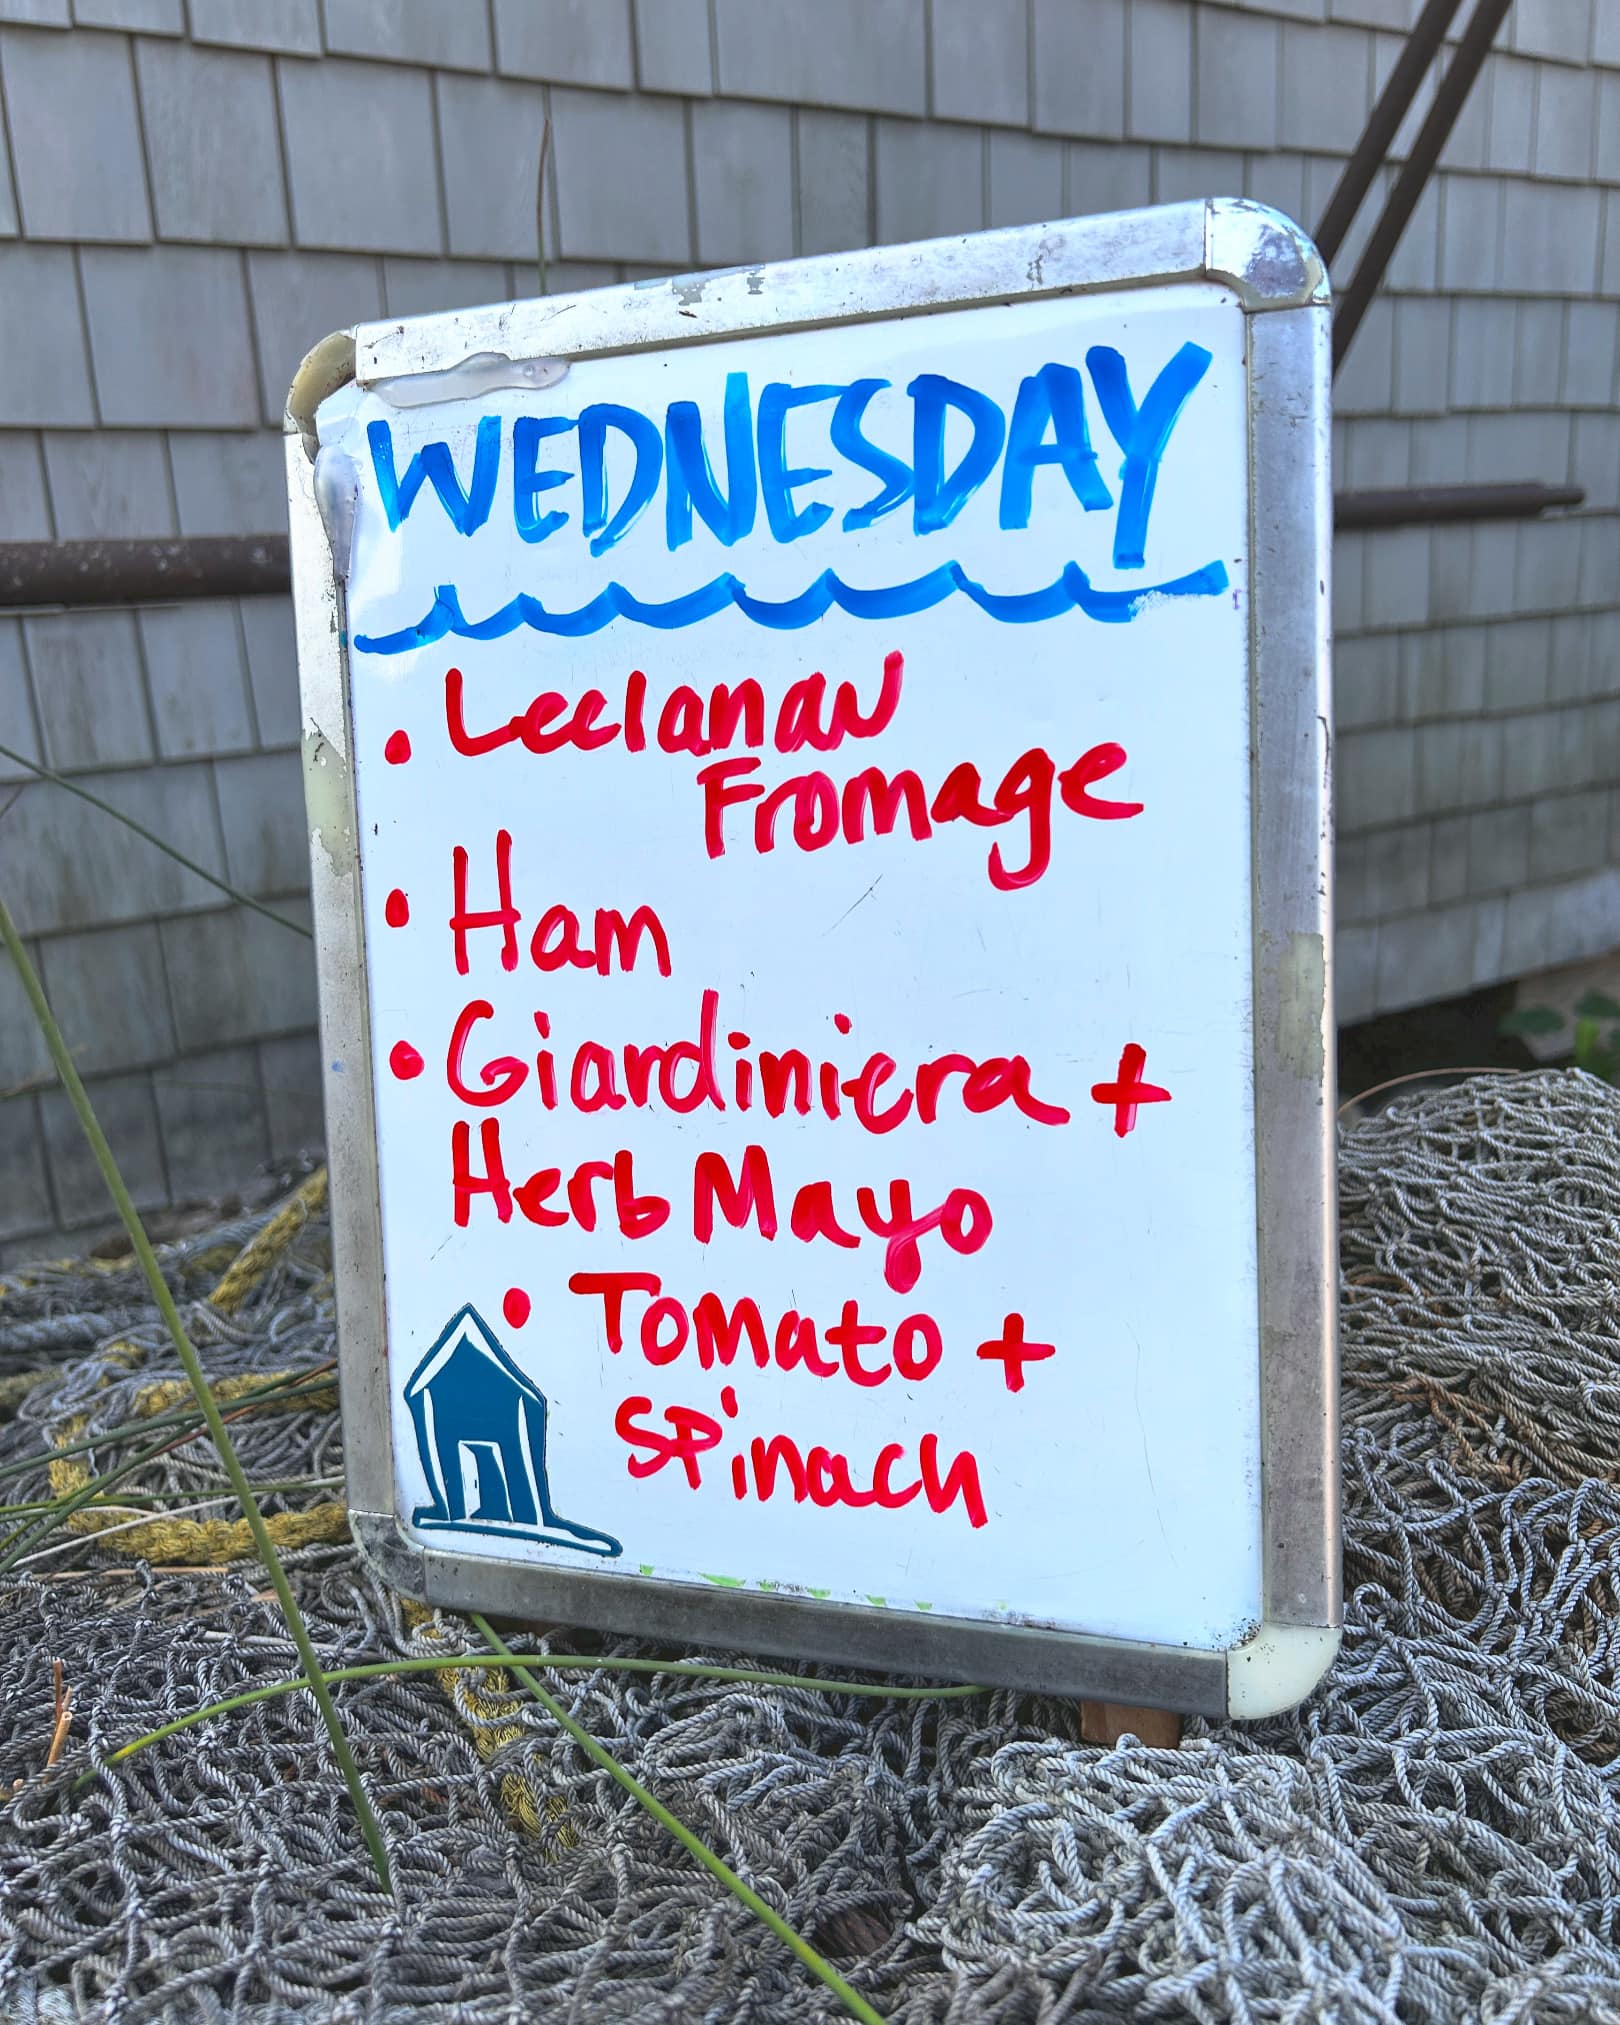 WEDNESDAY
• Leelanau
Fromage
• Ham
• Giardiniera +
Herb Mayo
• Tomato +
Spinach